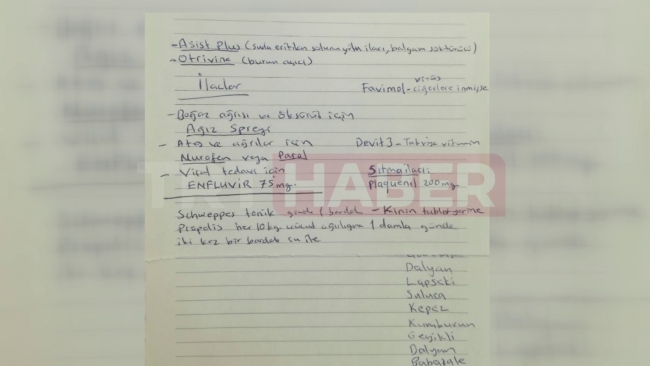 - Asist Plus (suda eritilen solunum yolu ilacı, balgam söktürücü)
- Otrivine (burun açıcı)
İlaçlar
virüs
Favimol - ciğerlere inmişse
- Boğaz ağrısı ve öksürük için
Ağız Spreyi
- Ateş ve ağrılar için
Devit3 - Takviye vitamin
Nurofen veya Parol
- Viral tedavi için
ENFLUVİR 75 mg.
Sıtma ilacı:
Plaquenil 200 mg
HABER
Schweppes tonik günde 1 bardak - Kinin tabletleri yerine
Propolis her 10 kg vücud ağırlığına 1 damla günde
iki kez bir bardak su ile
Dalyan
Lapseki
Suluca
Kepez
Kumburun
Geyikli
Dalyan
Babakale